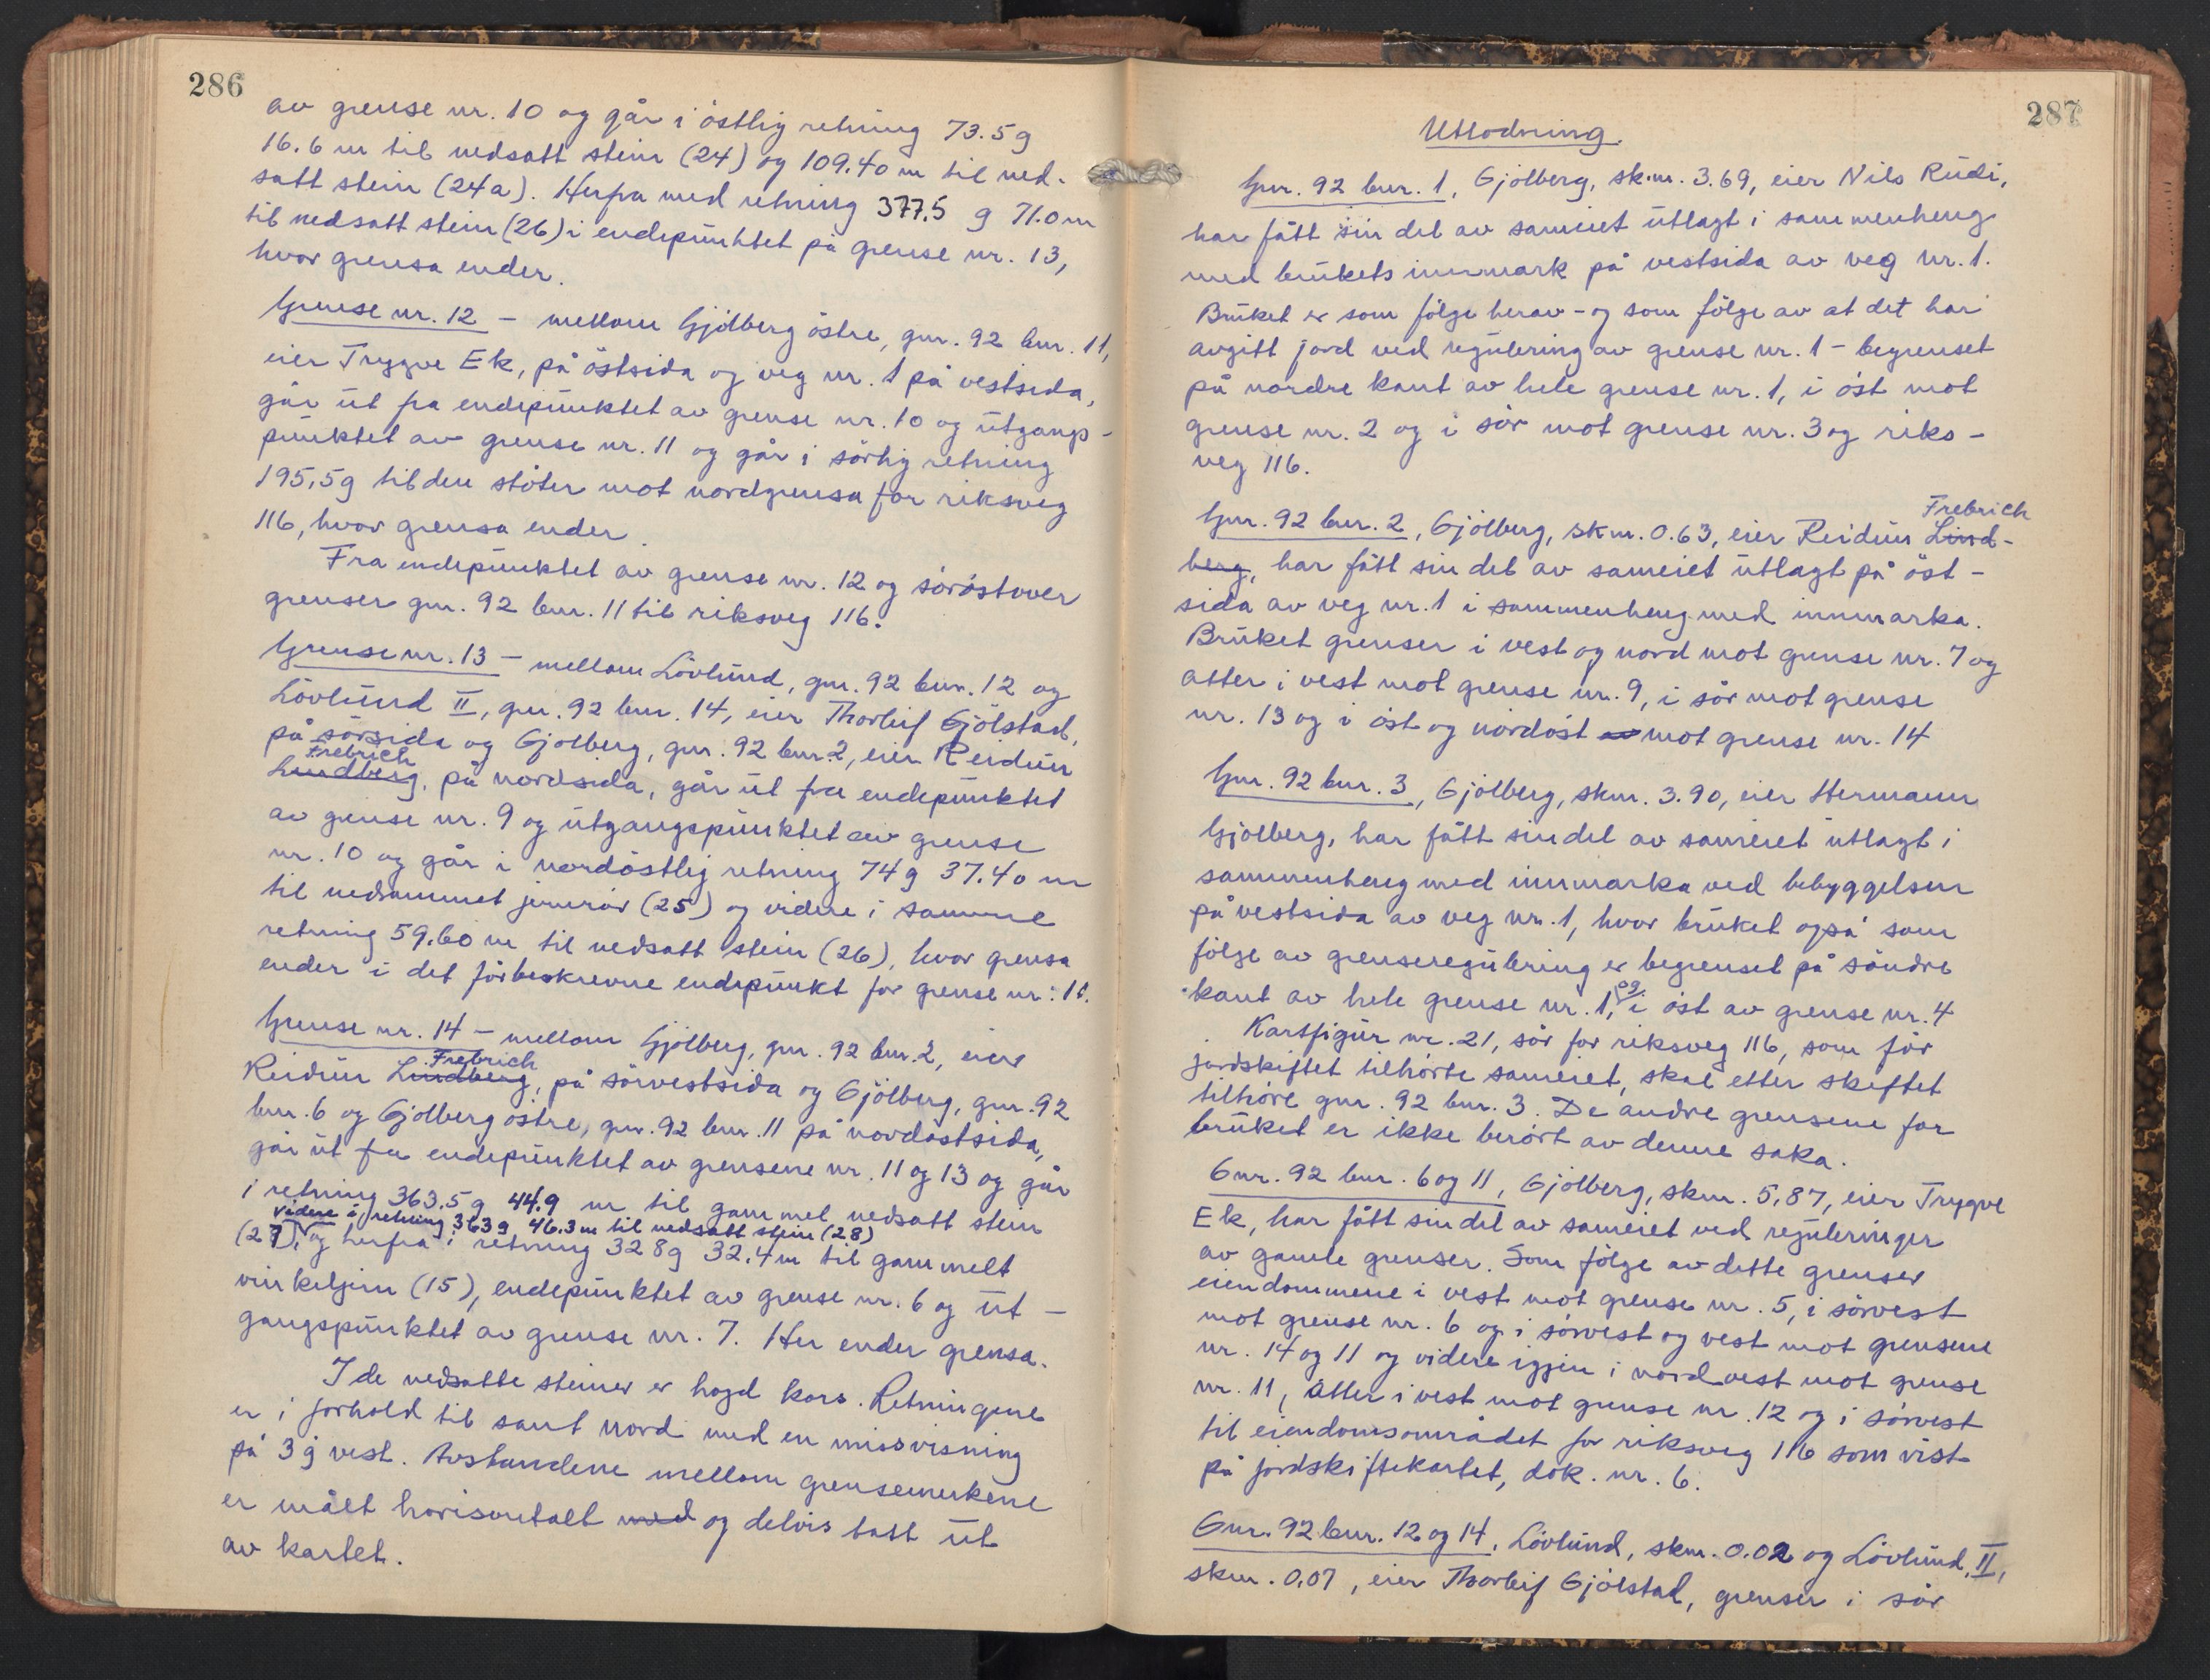 286
av grense nr. 10 og går i östlig retning 73.5g
16.6 m til nedsatt stein (24) og 109.40 m til ned-
satt stein (24a). Herfra med retning 377.5 g 71.0 m
til nedsatt stein (26) i endepunktet på grense nr. 13,
hvor grensa ender.
Grense nr. 12 – mellom Gjölberg östre, gnr. 92 bnr. 11,
eier Trygve Ek, på östsida og veg nr. 1 på vestsida,
går ut fra endepunktet av grense nr. 10 og utgangs-
punktet av grense nr. 11 og går i sörlig retning
195,5g til den stöter mot nordgrensa for riksveg
116, hvor grensa ender.
Fra endepunktet av grense nr. 12 og söröstover
grenser gnr. 92 bnr. 11 til riksveg 116.
Grense nr. 13 – mellom Lövlund, gnr. 92 bnr. 12 og
Lövlund II, gnr. 92 bnr. 14, eier Thorleif Gjölstad,
på sörsida og Gjölberg, gnr. 92 bnr. 2, eier Reidun
Frebrich
Lindberg, på nordsida, går ut fra endepunktet
av grense nr. 9 og utgangspunktet av grense
nr. 10 og går i nordöstlig retning 74g 37.40 m
til nedrammet jernrör (25) og videre i samme
retning 59.60 m til nedsatt stein (26), hvor grensa
ender i det förbeskrevne endepunkt for grense nr. 11.
Grense nr. 14 – mellom Gjölberg, gnr. 92 bnr. 2, eier
Frebrich
Reidun Lindberg, på sörvestsida og Gjölberg, gnr. 92
bnr. 6 og Gjölberg östre, gnr. 92 bnr. 11 på nordöstsida,
går ut fra endepunktet av grensene nr. 11 og 13 og går
i retning 363.5g 44.9 m til gammel nedsatt stein
videre i retning 363g 46.3m til nedsatt stein (28)
(27), og herfra i retning 328g 32.4m til gammelt
vinkeljern (15), endepunktet av grense nr. 6 og ut-
gangspunktet av grense nr. 7. Her ender grensa.
I de nedsatte steiner er hogd kors. Retningene
er i forhold til sant nord med en missvisning
på 3g vest. Avstandene mellom grensemerkene
er målt horisontalt med og delvis tatt ut
av kartet.
287
Utlodning.
Gnr. 92 bnr. 1, Gjölberg, skm. 3.69, eier Nils Rudi,
har fått sin del av sameiet utlagt i sammenheng
med brukets innmark på vestsida av veg nr. 1.
Bruket er som fölge herav – og som fölge av at det har
avgitt jord ved regulering av grense nr. 1 – begrenset
på nordre kant av hele grense nr. 1, i öst mot
grense nr. 2 og i sör mot grense nr. 3 og riks-
veg 116.
Frebrich
Gnr. 92 bnr. 2, Gjölberg, skm. 0.63, eier Reidun Lind-
berg, har fått sin del av sameiet utlagt på öst-
sida av veg nr. 1 i sammenheng med innmarka.
Bruket grenser i vest og nord mot grense nr. 7 og
atter i vest mot grense nr. 9, i sör mot grense
nr. 13 og i öst og nordöst av mot grense nr. 14
Gnr. 92 bnr. 3, Gjölberg, skm. 3.90, eier Hermann
Gjölberg, har fått sin del av sameiet utlagt i
sammenheng med innmarka ved bebyggelsen
på vestsida av veg nr. 1, hvor bruket også som
fölge av grenseregulering er begrenset på söndre
kant av hele grense nr. 1, og i öst av grense nr. 4
Karsfigur nr. 21, sör for riksveg 116, som för
jordskiftet tilhörte sameiet, skal etter skiftet
tilhöre gnr. 92 bnr. 3. De andre grensene for
bruket er ikke berört av denne saka.
Gnr. 92 bnr. 6 og 11, Gjölberg, skm. 5,87, eier Trygve
Ek, har fått sin del av sameiet ved reguleringer
av gamle grenser. Som fölge av dette grenser
eiendommene i vest mot grense nr. 5, i sörvest
mot grense nr. 6 og i sörvest og vest mot grensene
nr. 14 og 11 og videre igjen i nordvest mot grense
nr. 11, atter i vest mot grense nr. 12 og i sörvest
til eiendomsområdet for riksveg 116 som vist
på jordskiftekartet, dok. nr. 6.
Gnr. 92 bnr. 12 og 14, Lövlund, skm. 0.02 og Lövlund II,
skm. 0,07, eier Thorleif Gjölstad, grenser i sör